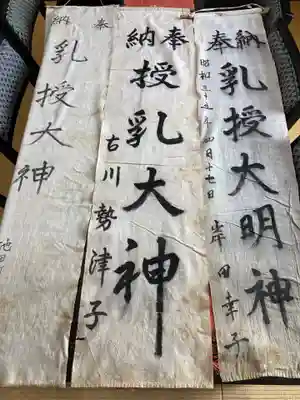 奉納
乳授大明神
昭和三十五年四月十七日
岸田幸子
奉納
授乳大神
古川勢津子
奉納
乳授大神
池田